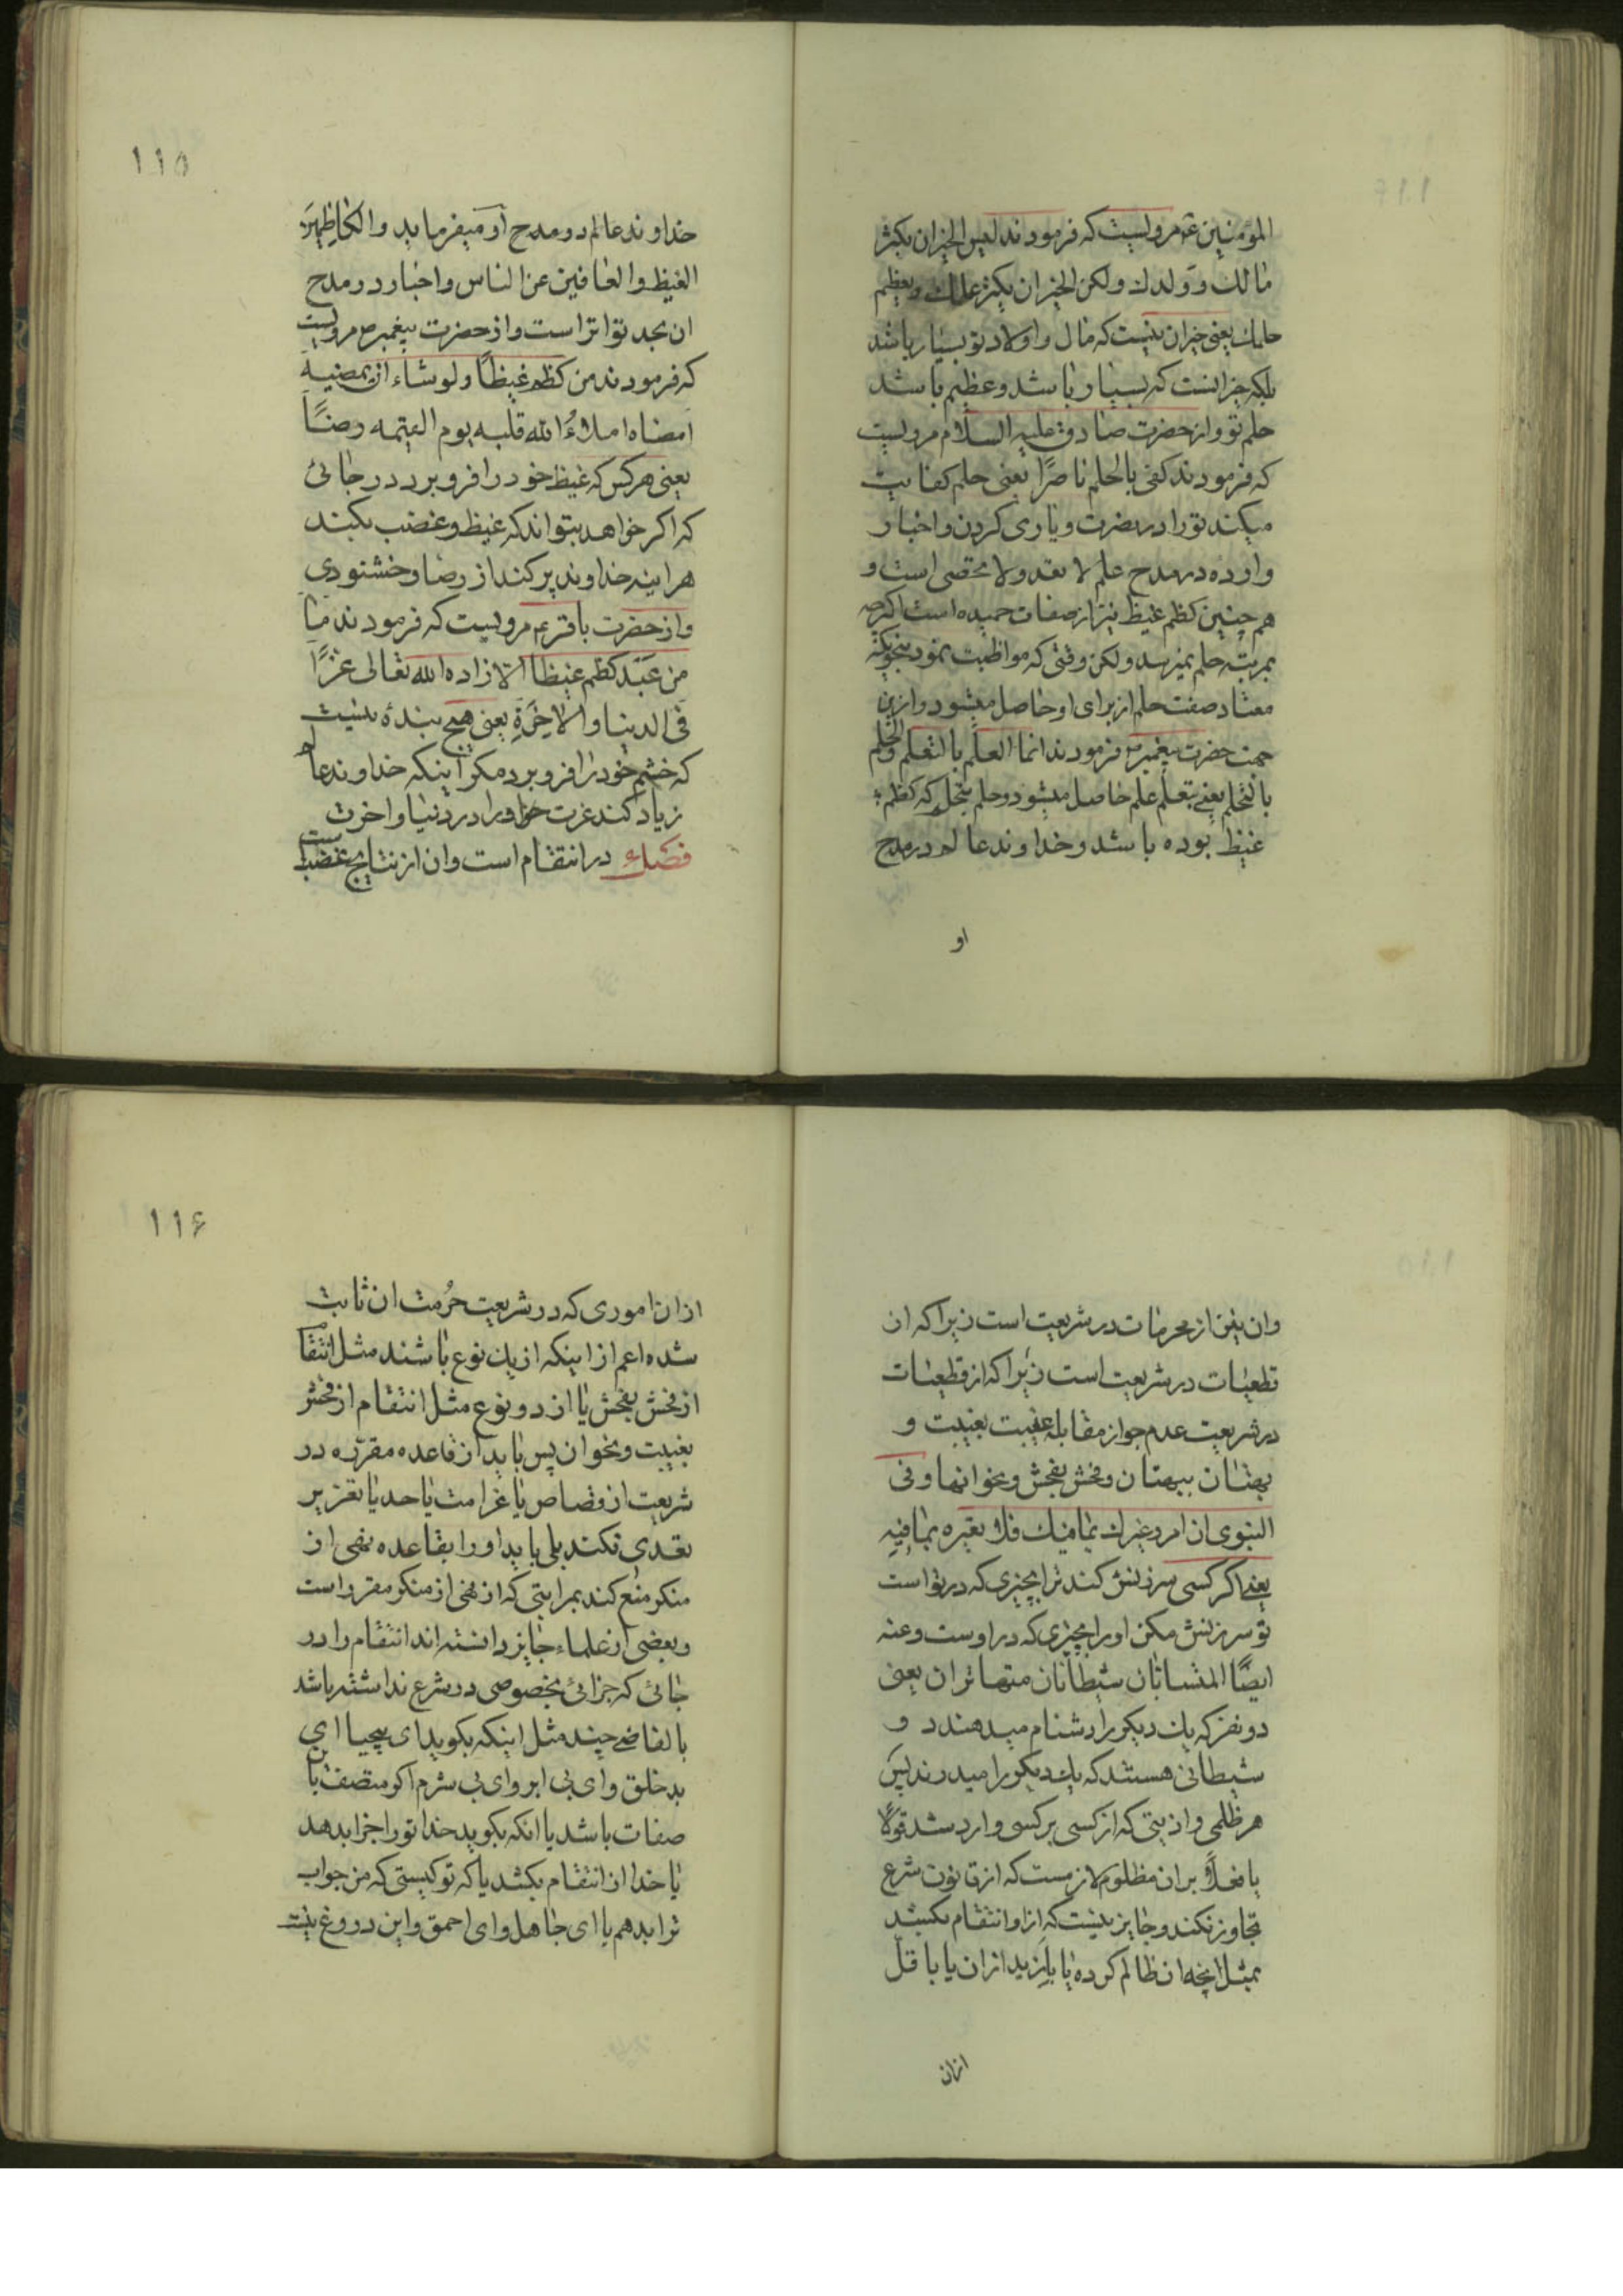 المؤمنین ع مرویست که فرمودند لیس الخیر ان یکثر
مالک و ولدک ولکن الخیر ان یکثر علمک و یعظم
حلمک یعنی خیر ان نیست که مال و اولاد تو بسیار باشد
بلکه خیر انست که بسیار باشد و عظیم باشد
حلم تو و از حضرت صادق علیه السلام مرویست
که فرمودند کفی بالحلم ناصرًا یعنی حلم کفایت
میکند تو را در نصرت و یاری کردن و اخبار
وارده در مدح علم لا تعد ولا تحصی است و
هم چنین کظم غیظ نیز از صفات حمیده است اکرچه
بمرتبه حلم نمیرسد ولکن وقتی که مواظبت نمود بنحویکه
معتاد صفت حلم از برای او حاصل میشود و ازین
جهت حضرت پیغمبر ص فرمودند انما العلم بالتعلم والحلم
بالتحلم یعنی بتعلم علم حاصل میشود و حلم بتحلم که کظم
غیظ بوده باشد و خداوند عالم در مدح
او
۱۱۵
خداوند عالم در مدح او میفرماید والکاظمین
الغیظ والعافین عن الناس و اخبار در مدح
ان بحد تواتر است و از حضرت پیغمبر ص مرویست
که فرمودند من کظم غیظًا ولو شاء ان یمضیه
امضاه املاءُ الله قلبه یوم القیمه رضًا
یعنی هرکس که غیظ خود را فرو برد در جائی
که اکر خواهد بتواند که غیظ و غضب بکند
هراینه خداوند پر کند از رضا و خشنودی
و از حضرت باقر ع مرویست که فرمودند ما
من عبد کظم غیظا الا زاده الله تعالی عزًا
فی الدنیا والاخرةِ یعنی هیچ بندهٔ نیست
که خشم خود را فرو برد مکر اینکه خداوند عالم
زیاد کند عزت او را در دنیا و اخرت
فصل در انتقام است و ان از نتایج غضب است
وان نیز از محرمات در شریعت است زیرا که از
قطعیات در شریعت است زیرا که از قطعیات
در شریعت عدم جواز مقابله غیبت بغیبت و
بهتان ببهتان و فحش بفحش و نحو انها و فی
النبوی ان امرء عیرک بما فیک فلا تعیره بما فیهِ
یعنی اکر کسی سرزنش کند ترا بچیزی که در تو است
تو سرزنش مکن او را بچیزی که در اوست و عنه
ایضًا المتسابان شیطانان متهاتران یعنی
دو نفر که یک دیکر را دشنام میدهند د و
شیطانی هستند که یک دیکر را میدرند پس
هر ظلمی و اذیتی که از کسی بر کسی وارد شد قولًا
یا فعلًا بر ان مظلوم لازمست که از قانون شرع
تجاوز نکند و جایز نیست که از او انتقام بکشد
بمثل انچه ان ظالم کرده یا بازید از ان یا باقل
ازان
۱۱۶
از ان اموری که در شریعت حُرمت ان ثابت
شده اعم از اینکه از یک نوع باشند مثل انتقام
از فحش بفحش یا از دو نوع مثل انتقام از فحش
بغیبت و نحو ان پس باید از قاعده مقرره در
شریعت از قصاص یا غرامت یا حد یا تعزیر
تعدی نکند بلی باید او را بقاعده نهی از
منکر منع کند بمراتبی که از نهی از منکر مقرر است
و بعضی از علماء جایز دانسته اند انتقام را در
جائی که جزائی بخصوصی در شرع نداشته باشد
بالفاضی چند مثل اینکه بکوید ای بیحیا ای
بد خلق و ای بی ابرو ای بی شرم اکر متصف باین
صفات باشد یا انکه بکوید خدا تو را جزا بدهد
یا خدا از ان انتقام بکشد یا که تو کیستی که من جواب
ترا بدهم یا ای جاهل و ای احمق و این دروغ نیست